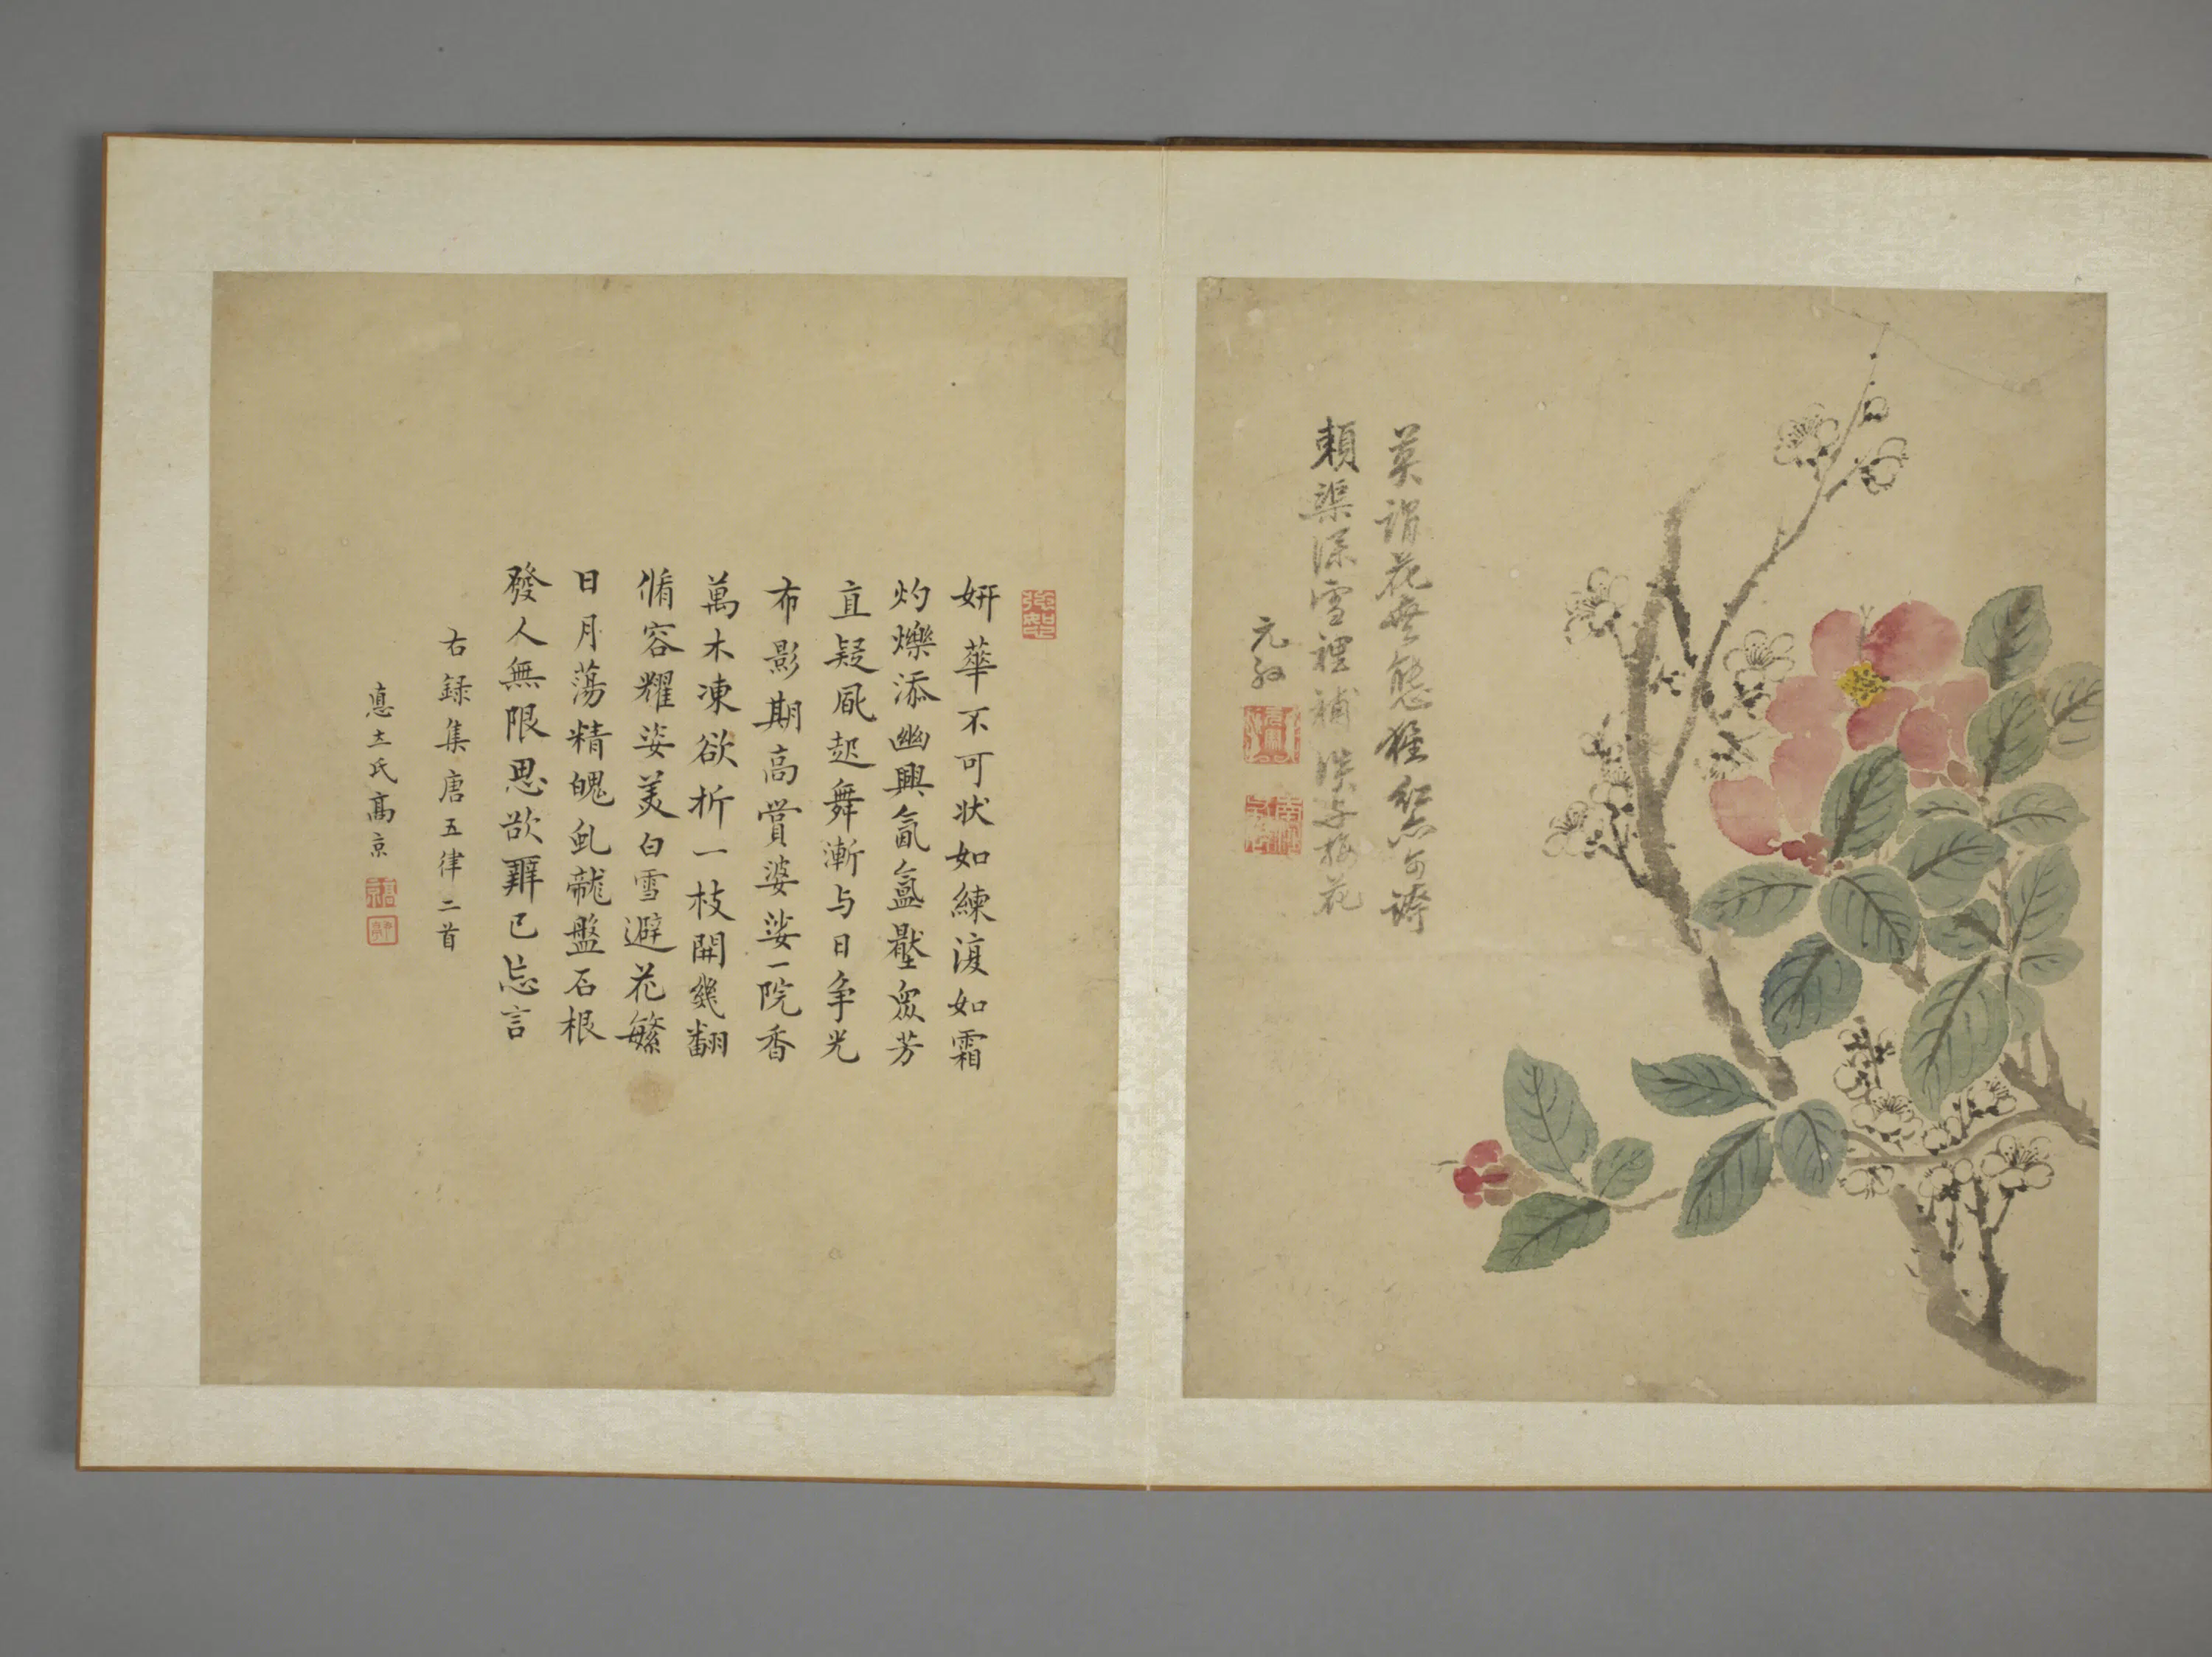 莫謂花無態種紅亦可誇
賴渠深雪裡補湊与梅花
元
妍華不可狀如練復如霜
灼爍添幽興氤氳壓眾芳
直疑風起舞漸与日争光
布影期高賞婆娑一院香
萬木凍欲折一枝開幾翻
脩容耀姿美白雪避花繁
日月蕩精魄虬龍盤石根
發人無限思欲辨已忘言
右録集唐五律二首
士氏高京